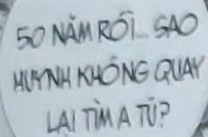 50 NĂM RỒI... SAO
HUYNH KHÔNG QUAY
LẠI TÌM A TÚ?